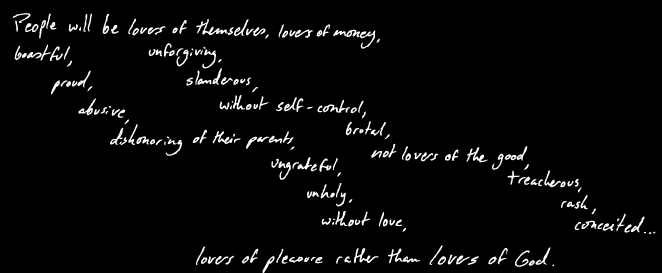 People will be lovers of themselves, lovers of money,
boastful,
proud,
abusive,
dishonoring of their parents,
ungrateful,
unholy,
without love,
unforgiving,
slanderous,
without self-control,
brutal,
not lovers of the good,
treacherous,
rash,
conceited...
lovers of pleasure rather than lovers of God.